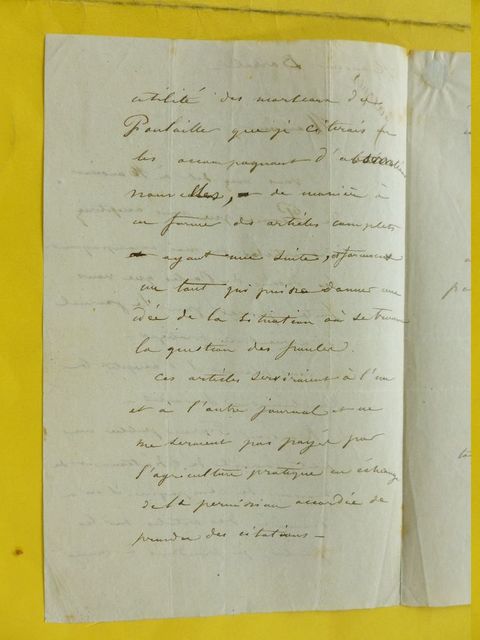 utilité des morceaux d'
Poulailler que je citerais en
les accompagnant d'observations
nouvelles, de manière à
en former des articles complets
ayant une suite, et formant
un tout qui puisse donner une
idée de la situation où se trouve
la question des poules.
Ces articles serviraient à l'un
et à l'autre journal et ne
me seraient pas payés par
l'agriculture pratique en échange
de la permission accordée de
prendre des citations —